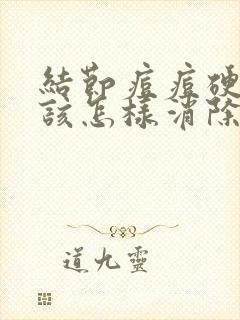 結節痘痘硬
該怎樣消除
道九靈